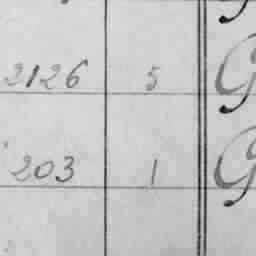 2126 5 G
203 1 G